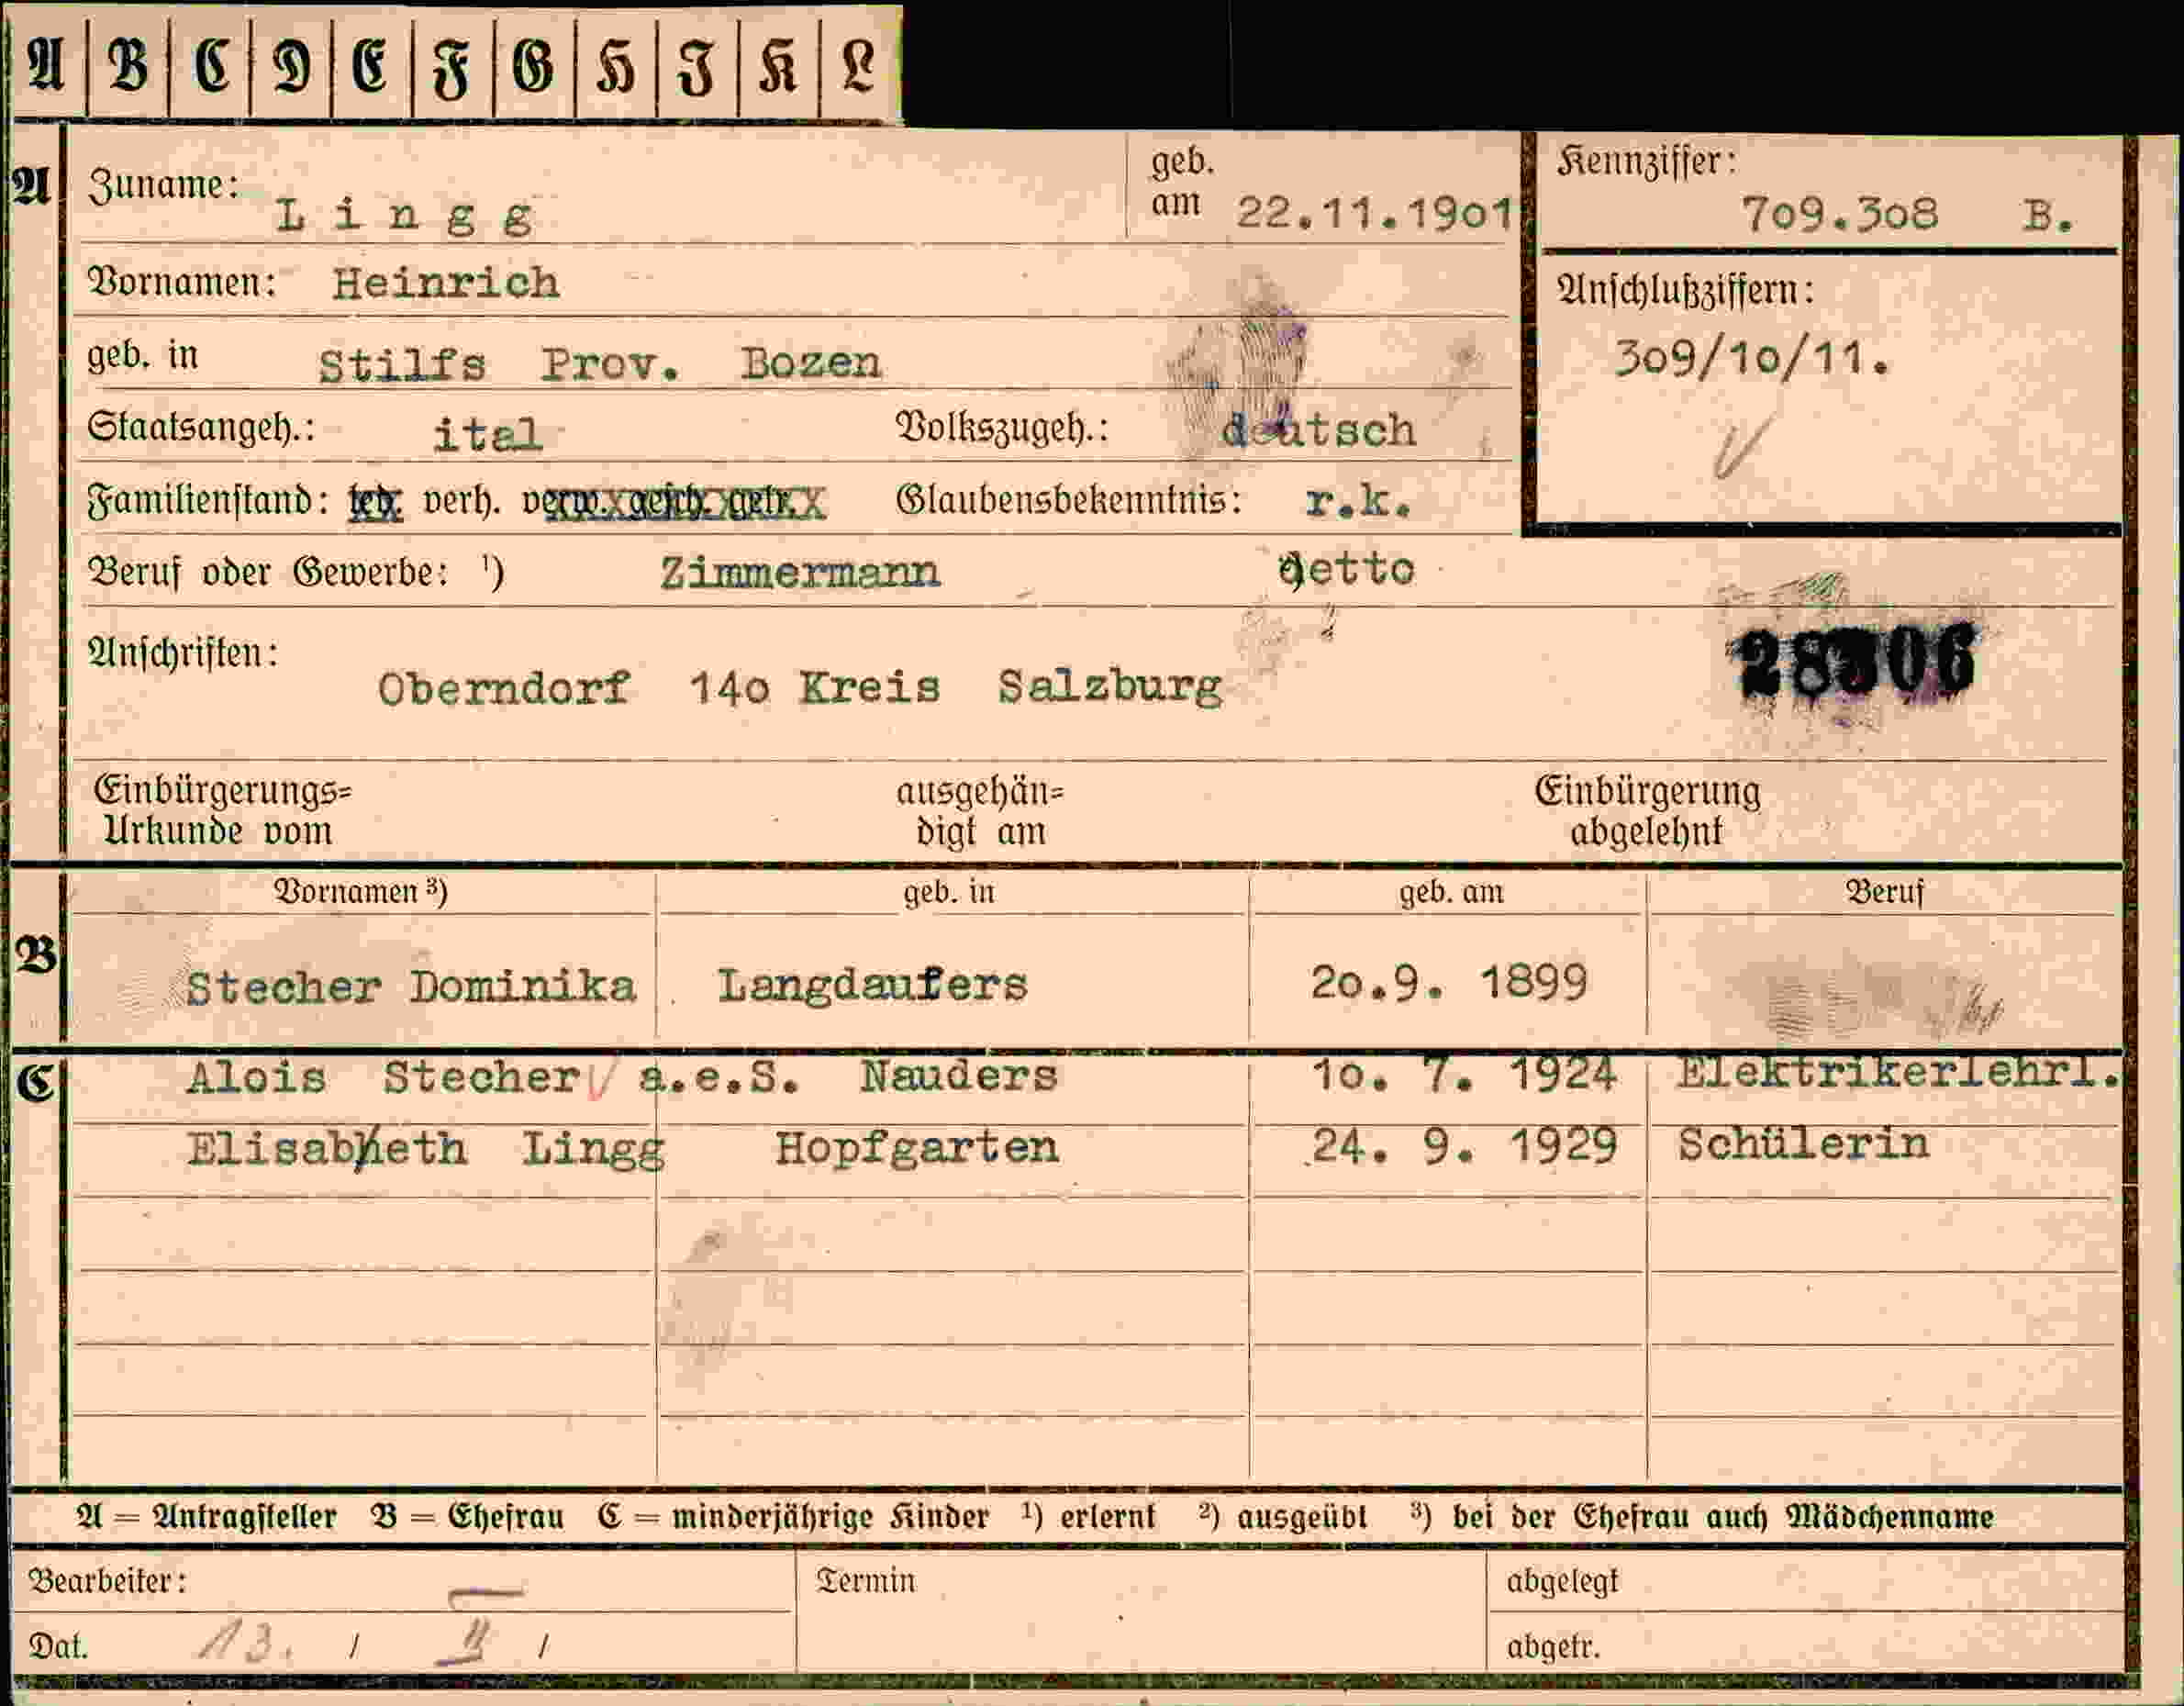 A B C D E F G H I K L
A Zuname: Lingg geb. am 22.11.1901 Kennziffer: 709.308 B.
Vornamen: Heinrich
Anschlußziffern:
geb. in Stilfs Prov. Bozen 309/10/11.
Staatsangeh.: ital Volkszugeh.: deutsch
Familienstand: led. verh. verw. gesch. getr. Glaubensbekenntnis: r.k.
Beruf oder Gewerbe: ¹) Zimmermann detto
Anschriften: 
Oberndorf 14o Kreis Salzburg
Einbürgerungs= ausgehän= Einbürgerung
Urkunde vom digt am abgelehnt
Vornamen ³) geb. in geb. am Beruf
B Stecher Dominika Langdaufers 2o.9. 1899
C Alois Stecher a.e.S. Nauders 1o. 7. 1924 Elektrikerlehrl.
Elisabeth Lingg Hopfgarten 24. 9. 1929 Schülerin
A = Antragsteller B = Ehefrau C = minderjährige Kinder ¹) erlernt ²) ausgeübt ³) bei der Ehefrau auch Mädchenname
Bearbeiter: Termin abgelegt
Dat. 13. / II / abgetr.